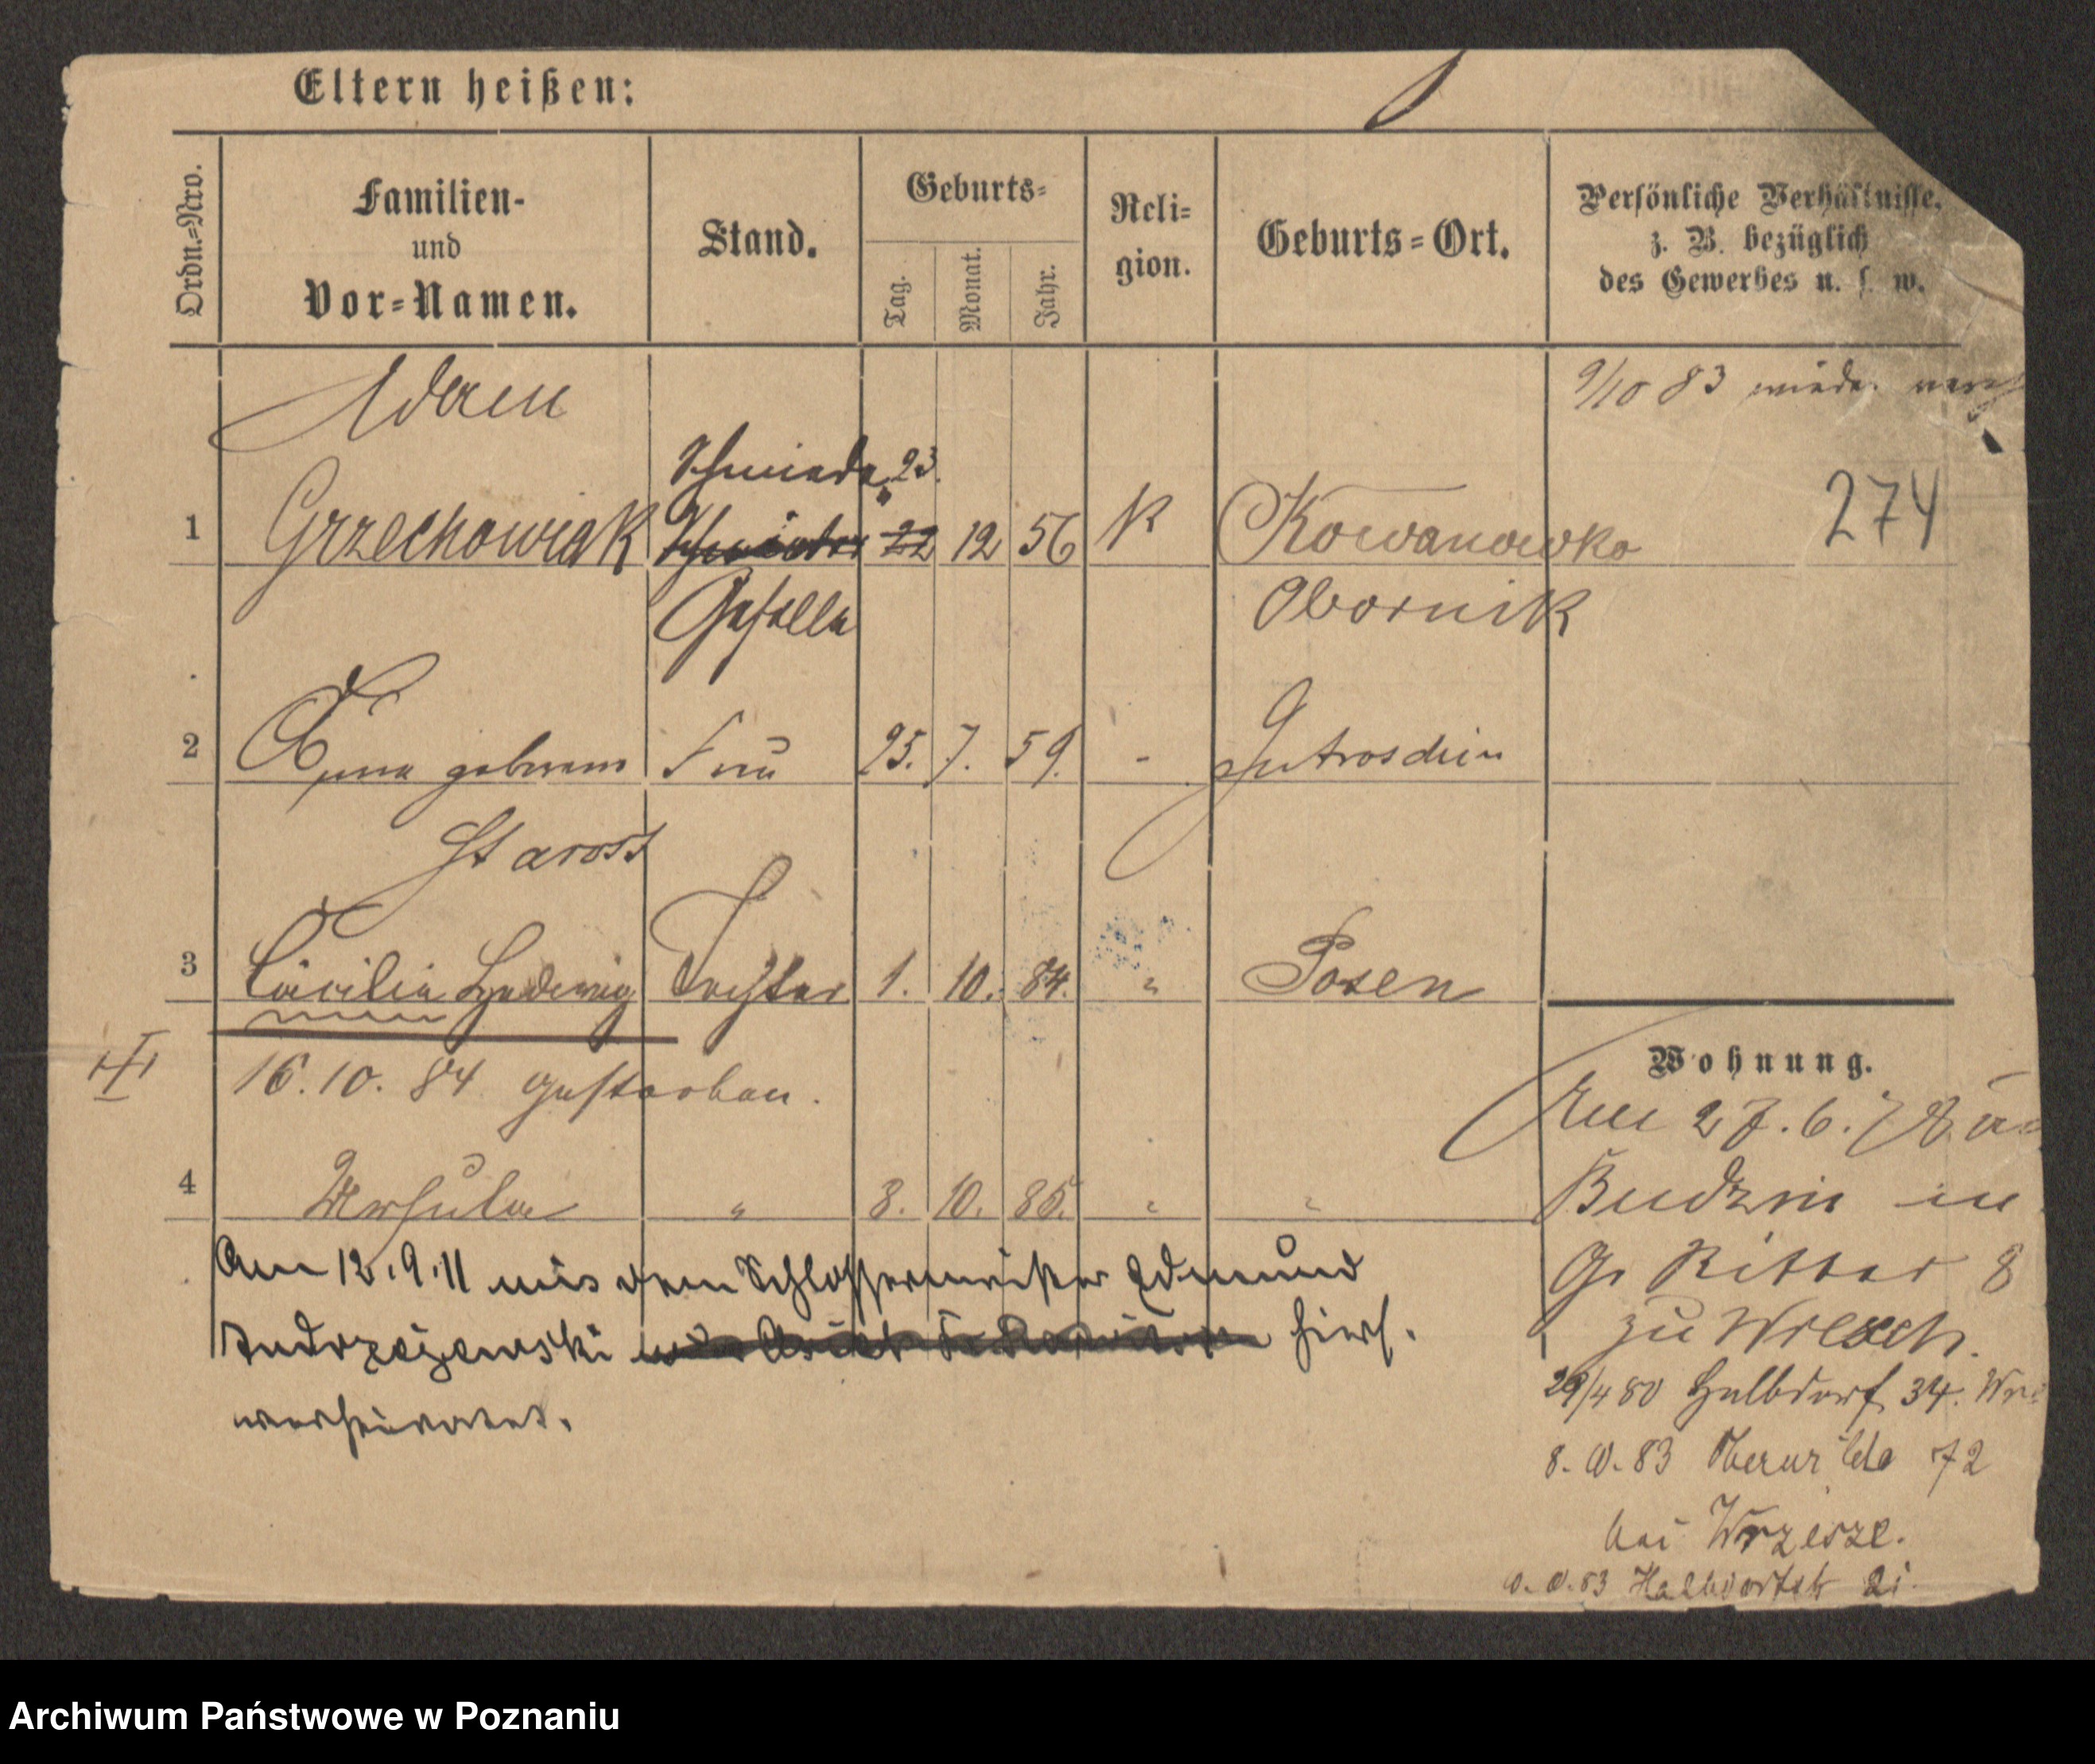 Eltern heißen:
Ordn.=Nro.
Familien-
und
Vor=Namen.
Stand.
Geburts=
Tag. Monat. Jahr.
Reli=
gion.
Geburts=Ort.
Persönliche Verhältnisse,
z. B. bezüglich
des Gewerbes u. s. w.
Adam
9/10 83 wieder
Schmiede 23.
1 Grzechowiak 22 12 56 K Kowanowko 274
Geselle Obornik
2 Anna geborene Frau 25. 7. 59. - Jutroschin
Starost
3 Cäcilia Hedwig Tochter 1. 10. 84. " Posen
16. 10. 84 gestorben.
Wohnung.
Am 27. 6. 78
4 Ursula " 3. 10. 85. " "
Budzin in
Am 12.9.11 mit dem Schlossermeister Edmund
Gr Ritter 8
Andrzejewski hier.
zu Wresch.
verheiratet.
29/4 80 Halbdorf 34.
8. 83 Oberwilda 72
bei
83 Halbdorfstr 21.